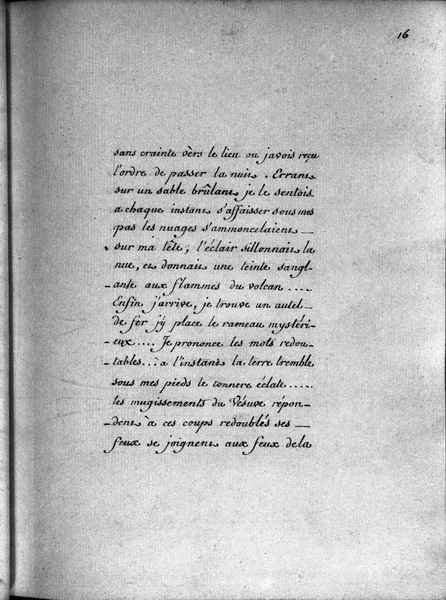 16
sans crainte vèrs le lieu ou javois reçu
l'ordre de passer la nuit. Errant
sur un sable brûlant je le sentois
a chaque instant s'affaisser sous mes
pas les nuages s'ammoncelaient —
sur ma tête; l'éclair sillonnait la
nue, et donnait une teinte sangl-
-ante aux flammes du volcan....
Enfin j'arrive, je trouve un autel
de fer j'y place le rameau mystéri-
-eux.... Je prononce les mots redou-
-tables... à l'instant la terre tremble
sous mes pieds le tonnere éclate.....
les mugissements du Vésuve répon-
-dent à ces coups redoublés ses —
feux se joignent aux feux de la